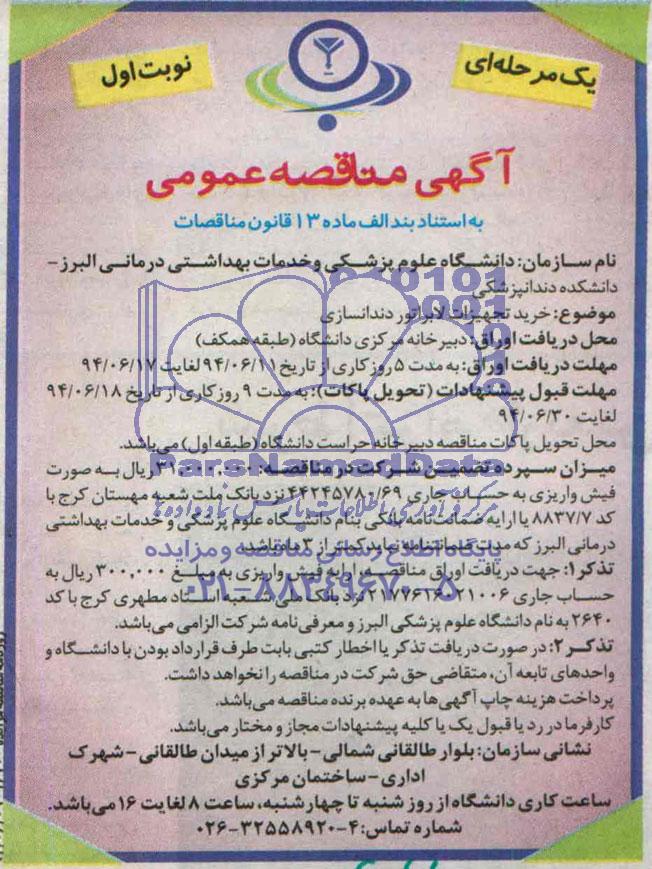 یک مرحله‌ای
نوبت اول
آگهی مناقصه عمومی
به استناد بند الف ماده ۱۳ قانون مناقصات
نام سازمان: دانشگاه علوم پزشکی و خدمات بهداشتی درمانی البرز -
دانشکده دندانپزشکی
موضوع: خرید تجهیزات لابراتور دندانسازی
محل دریافت اوراق: دبیرخانه مرکزی دانشگاه (طبقه همکف)
مهلت دریافت اوراق: به مدت ۵ روز کاری از تاریخ ۹۴/۰۶/۱۱ لغایت ۹۴/۰۶/۱۷
مهلت قبول پیشنهادات (تحویل پاکات): به مدت ۹ روز کاری از تاریخ ۹۴/۰۶/۱۸
لغایت ۹۴/۰۶/۳۰
محل تحویل پاکات مناقصه دبیرخانه حراست دانشگاه (طبقه اول) می‌باشد.
میزان سپرده تضمین شرکت در مناقصه: ریال به صورت
فیش واریزی به حساب جاری ۴۴۲۴۵۷۸۰/۶۹ نزد بانک ملت شعبه مهستان کرج با
کد ۸۸۳۷/۷ یا ارایه ضمانت‌نامه بانکی بنام دانشگاه علوم پزشکی و خدمات بهداشتی
درمانی البرز که مدت ضمانتنامه نباید کمتر از ۳ ماه باشد.
تذکر۱: جهت دریافت اوراق مناقصه، ارایه فیش واریزی به مبلغ ۳۰۰,۰۰۰ ریال به
حساب جاری نزد بانک ملی شعبه استاد مطهری کرج با کد
۲۶۴۰ به نام دانشگاه علوم پزشکی البرز و معرفی نامه شرکت الزامی می‌باشد.
تذکر۲: در صورت دریافت تذکر یا اخطار کتبی بابت طرف قرارداد بودن با دانشگاه و
واحدهای تابعه آن، متقاضی حق شرکت در مناقصه را نخواهد داشت.
پرداخت هزینه چاپ آگهی‌ها به عهده برنده مناقصه می‌باشد.
کارفرما در رد یا قبول یک یا کلیه پیشنهادات مجاز و مختار می‌باشد.
نشانی سازمان: بلوار طالقانی شمالی - بالاتر از میدان طالقانی - شهرک
اداری - ساختمان مرکزی
ساعت کاری دانشگاه از روز شنبه تا چهارشنبه، ساعت ۸ لغایت ۱۶ می‌باشد.
شماره تماس: ۴-۳۲۵۵۸۹۲۰-۰۲۶
ParsNamadData
مرکز فرآوری اطلاعات پارس نماد داده‌ها
پایگاه اطلاع رسانی مناقصه و مزایده
۰۲۱-۸۸۳۴۹۶۷۰-۵